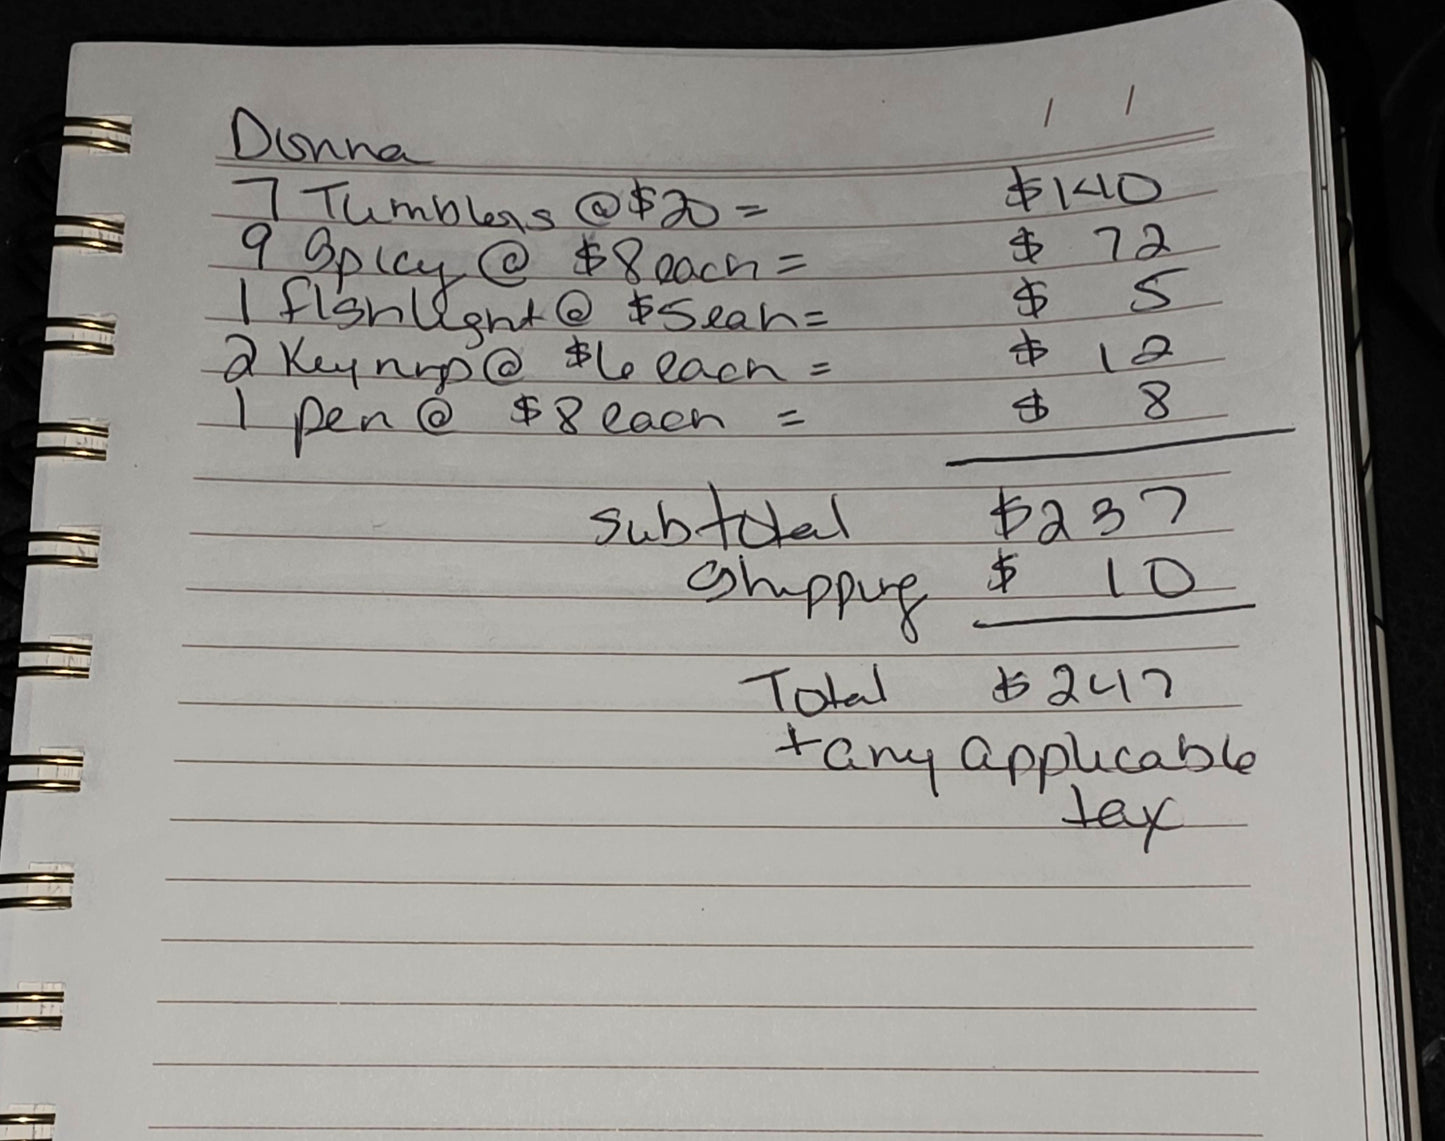 Donna
7 Tumblers @ $20 = $140
9 Spicy @ $8 each = $ 72
1 flshlight @ $5 eah = $ 5
2 Key @ $6 each = $ 12
1 pen @ $8 each = $ 8
subtotal $237
Shipping $ 10
Total $247
+ any applicable
tax